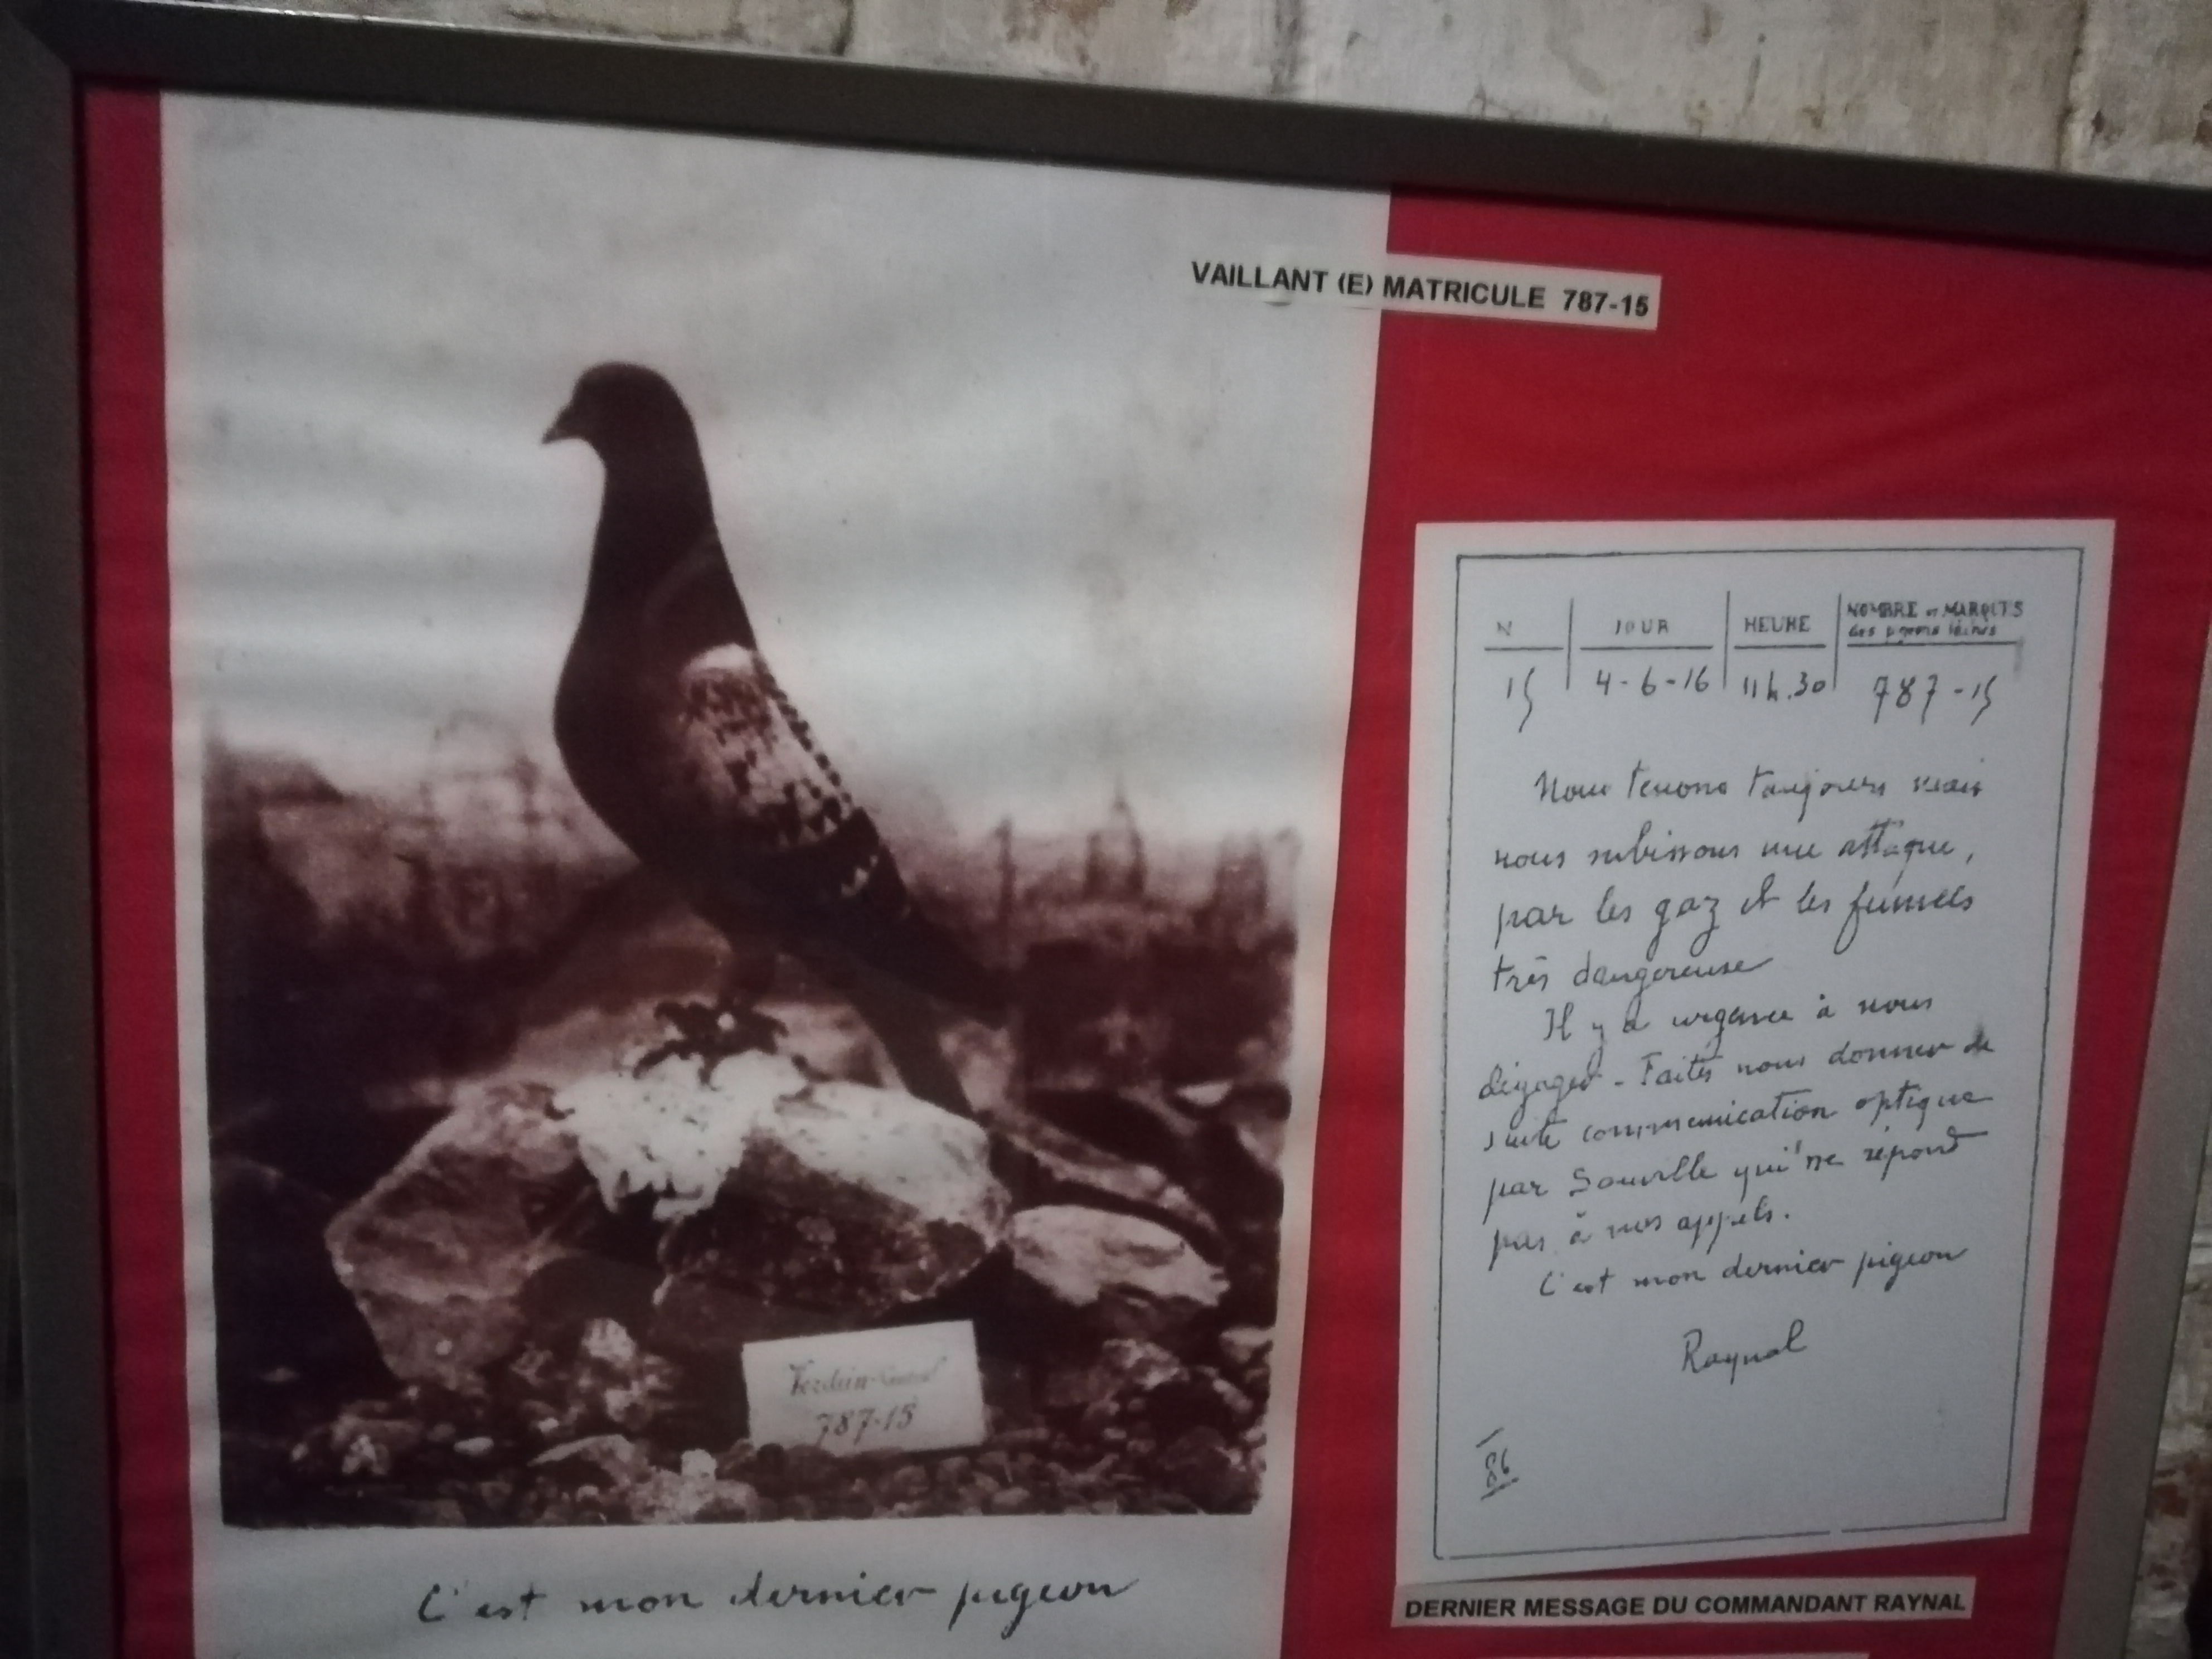 VAILLANT (E) MATRICULE 787-15
N JOUR HEURE NOMBRE et MARQUES
des pigeons lâchés
15 4-6-16 11h.30 787-15
Nous tenons toujours mais
nous subissons une attaque,
par les gaz et les fumées
très dangereuse
Il y a urgence à nous
dégager - Faites nous donner de
suite communication optique
par Souville qui ne répond
pas à nos appels.
C'est mon dernier pigeon
Raynal
86
Verdun
787-15
C'est mon dernier pigeon
DERNIER MESSAGE DU COMMANDANT RAYNAL